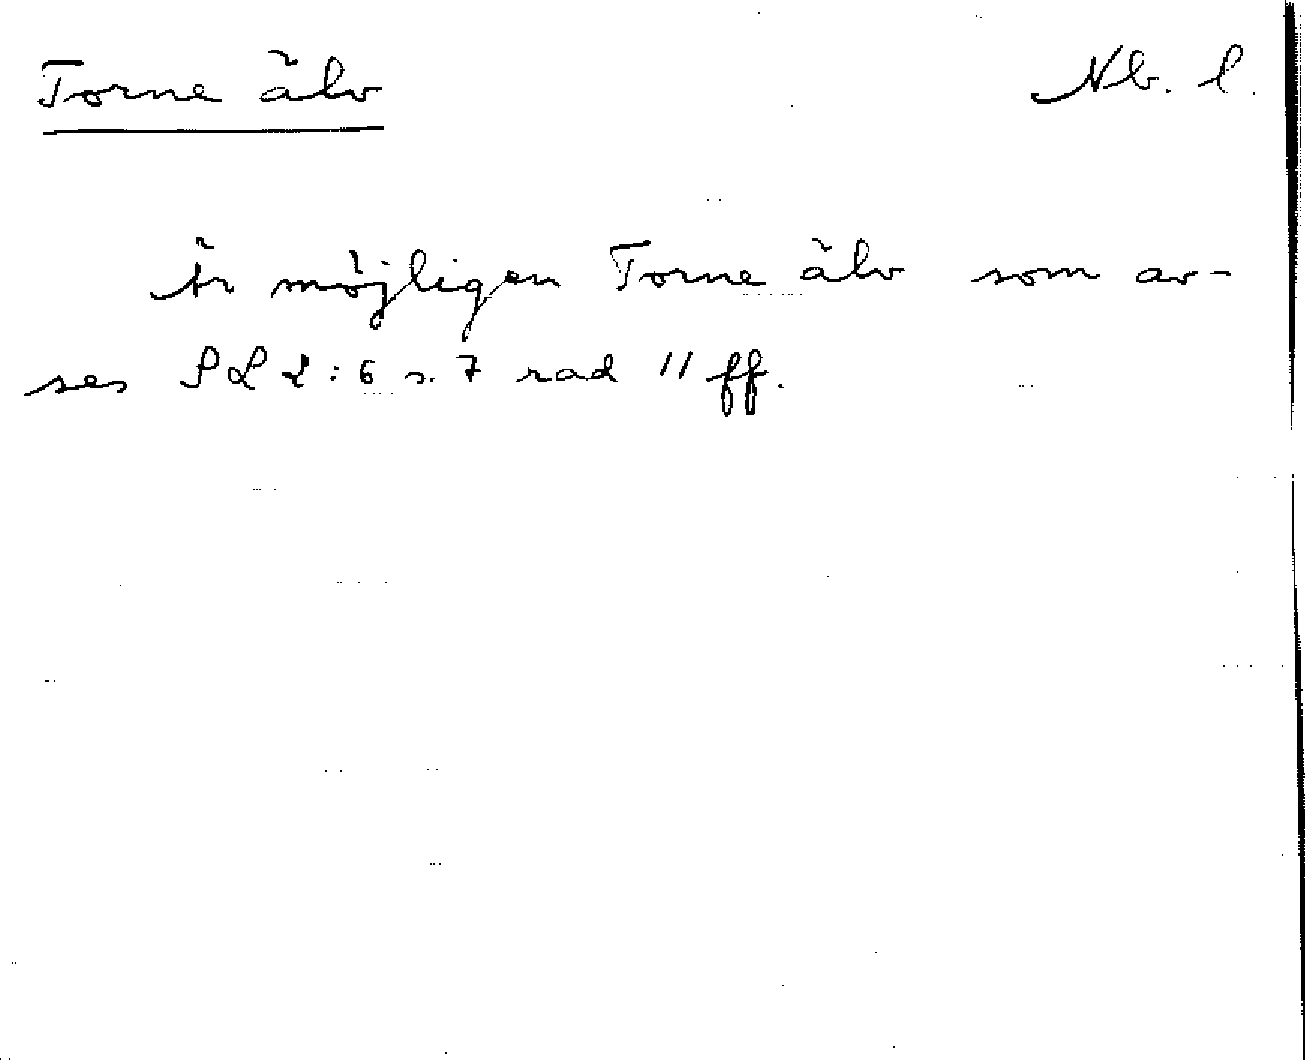 Torne älv Nb. l.
Är möjligen Torne älv som av-
ses PL 2:6 s. 7 rad 11 ff.